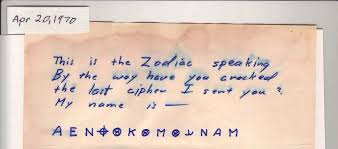 Apr 20, 1970
This is the Zodiac speaking
By the way have you cracked
the last cipher I sent you ?
My name is —
A E N ⌖ ⊗ K ⊗ M ⊗ ⅃ N A M